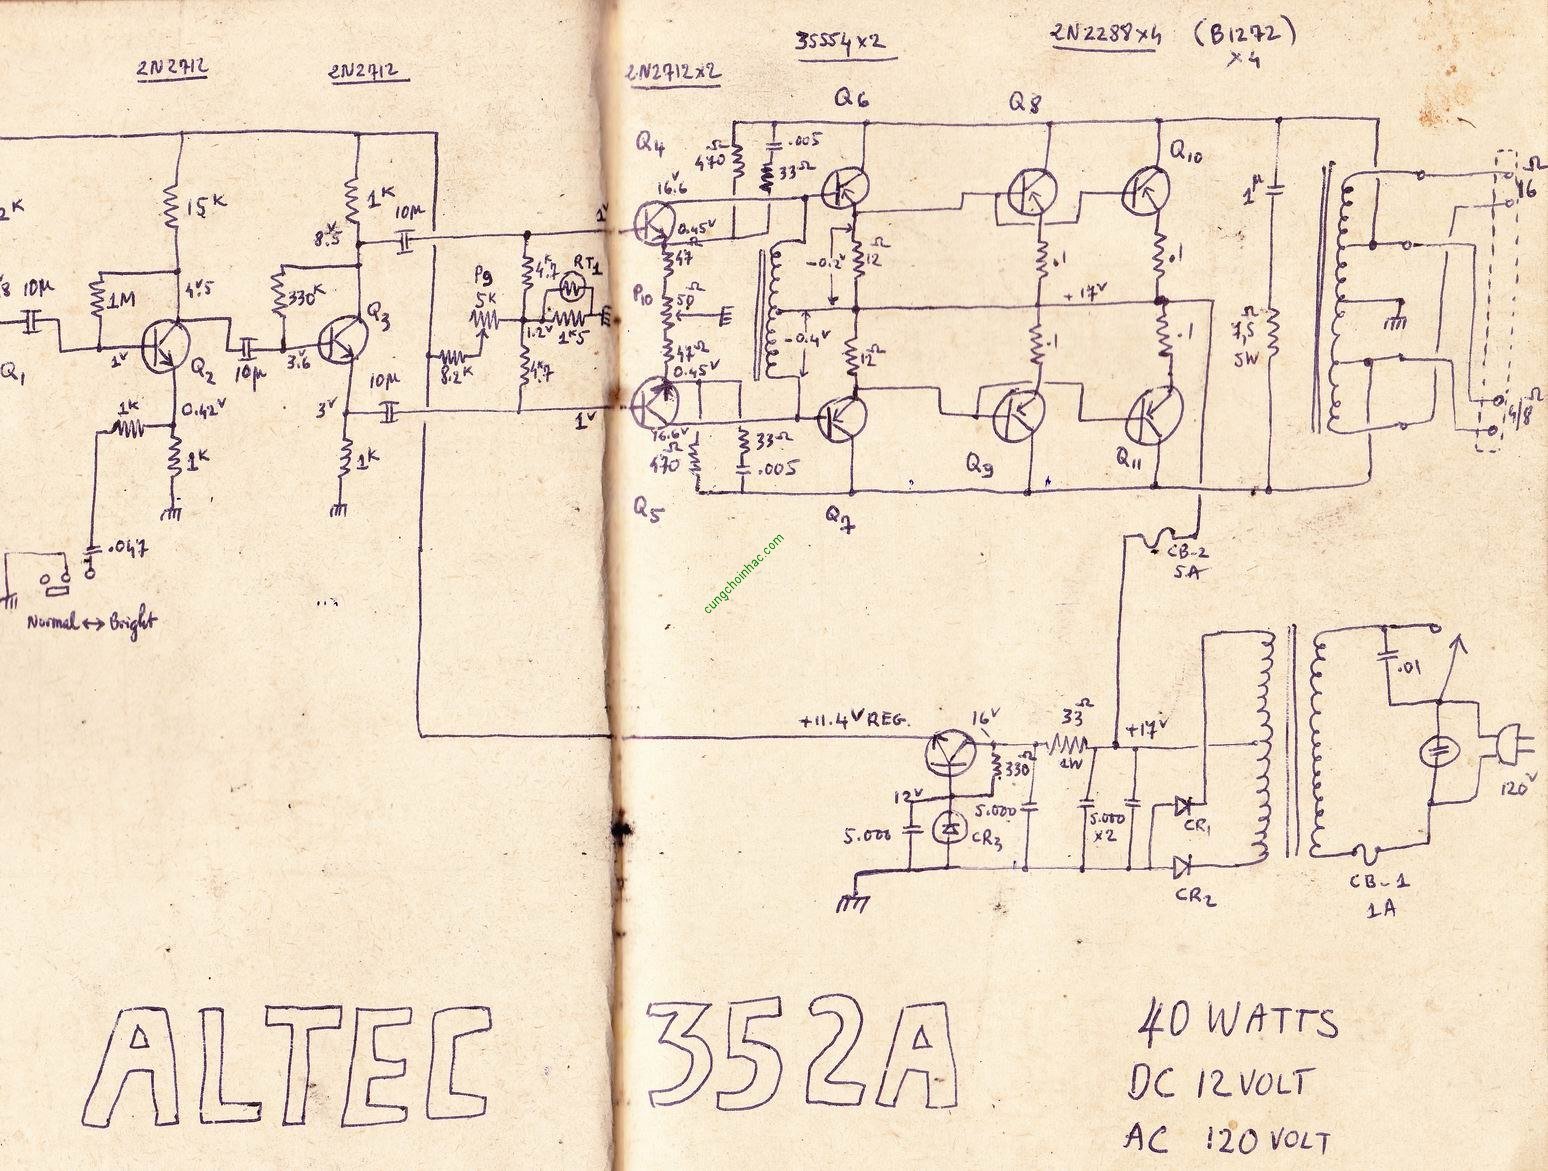 2N2712
2N2712
2N2712x2
3S554x2
2N2288x4 (B1272)
x4
Q6
Q8
Q4
470Ω
.005
33Ω
Q10
16.6V
0.45V
47Ω
P10
50Ω
47Ω
0.45V
16.6V
470Ω
33Ω
.005
Q5
Q7
-0.2V
12Ω
-0.4V
12Ω
.1
.1
+17V
.1
.1
Q9
Q11
1µ
7,5Ω
5W
16Ω
4/8Ω
CB-2
5A
2K
15K
1K
10µ
8.5V
1V
10µ
1M
4V5
330K
Q3
P9
5K
4K7
RT1
1.2V
1K5
8.2K
4K7
Q1
1V
Q2
10µ
3.6
10µ
3V
1V
1K
0.42V
1K
1K
.047
Normal ↔ Bright
cungchoinhac.com
+11.4V REG.
16V
33Ω
1W
+17V
330Ω
12V
5.000
5.000
5.000
x2
CR3
CR1
CR2
.01
120V
CB-1
1A
ALTEC 352A
40 WATTS
DC 12 VOLT
AC 120 VOLT